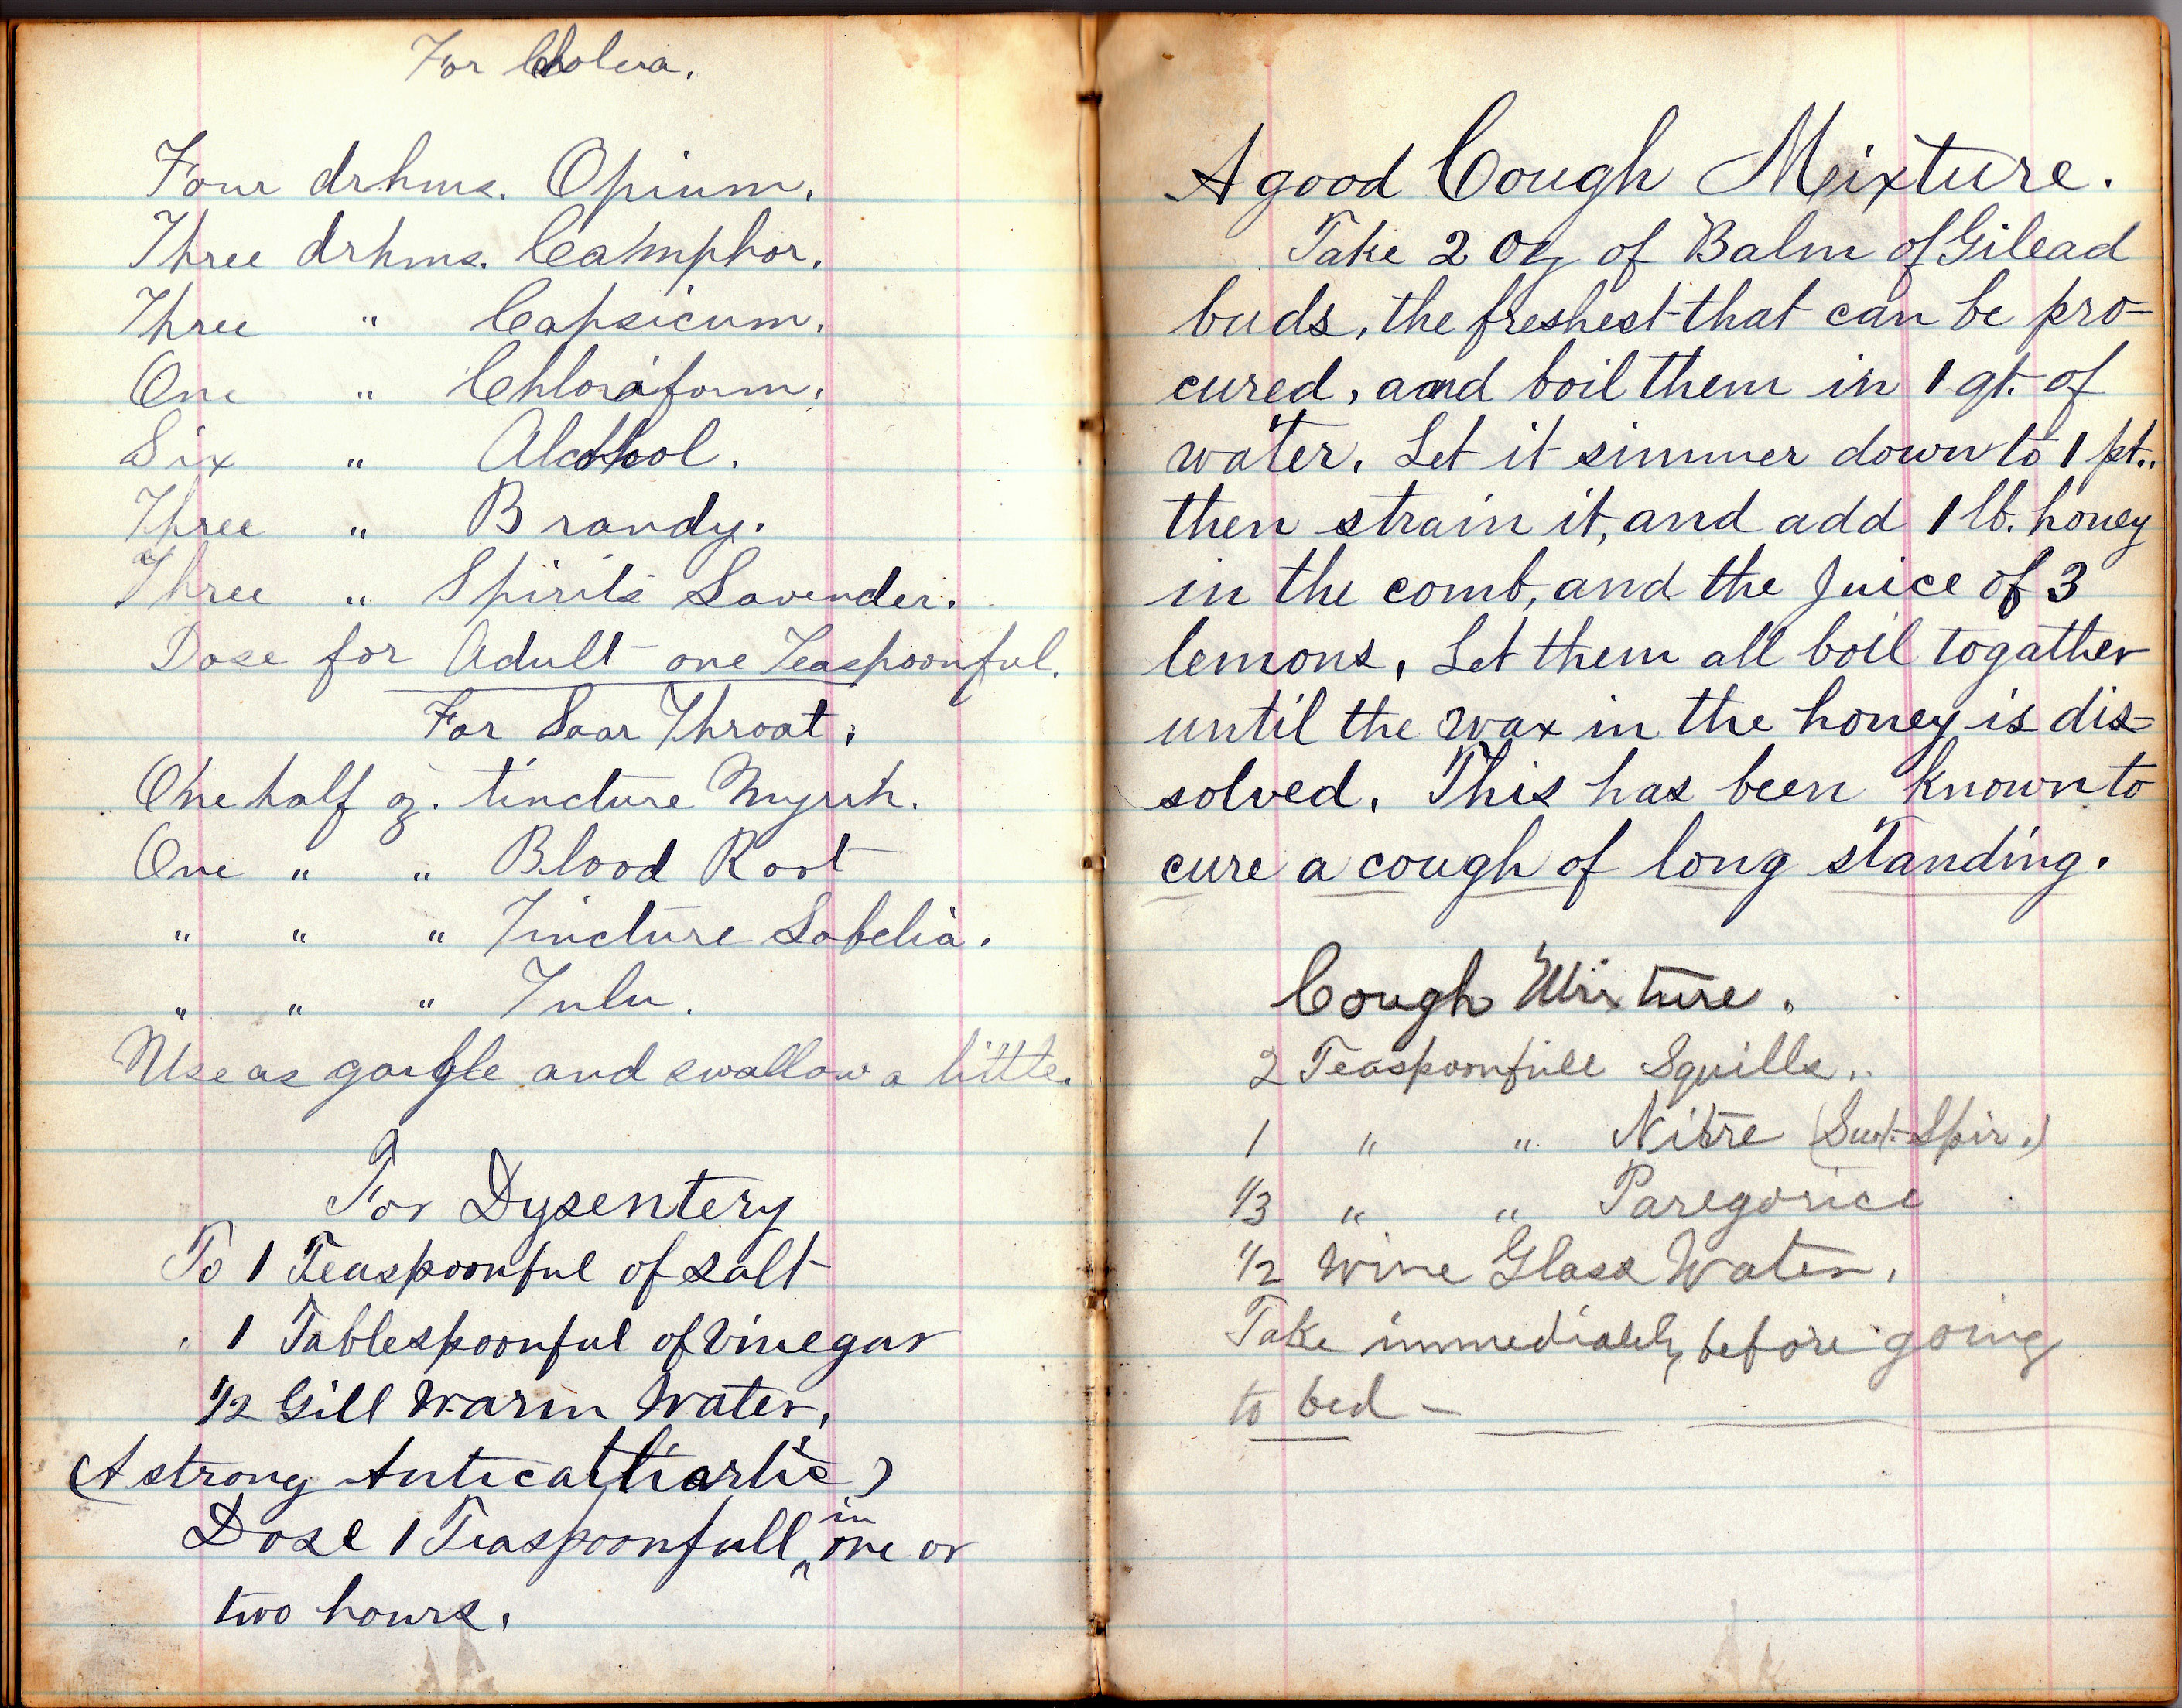 For Cholera.
Four drhms. Opium.
Three drhms. Camphor.
Three " Capsicum.
One " Chloroform.
Six " Alcohol.
Three " Brandy.
Three " Spirits Lavender.
Dose for Adult - one Teaspoonful.
For Soar Throat.
One half oz. tincture Myrrh.
One " " Blood Root
" " " Tincture Lobelia.
" " " Tulu.
Use as gargle and swallow a little.
For Dysentery
To 1 Teaspoonful of salt
" 1 Tablespoonful of Vinegar
1/2 Gill Warm Water.
(A strong Anticathartic)
Dose 1 Teaspoonfull in one or
two hours.
A good Cough Mixture.
Take 2 Oz of Balm of Gilead
buds, the freshest that can be pro-
cured, aand boil them in 1 qt. of
water. Let it simmer down to 1 pt..
then strain it, and add 1 lb. honey
in the comb, and the Juice of 3
lemons. Let them all boil togather
until the wax in the honey is dis-
solved. This has been known to
cure a cough of long standing.
Cough Mixture.
2 Teaspoonfull Squills..
1 " " Nitre (Swt. Spir.)
1/3 " " Paregorice
1/2 Wine Glass Water.
Take immediately before going
to bed -